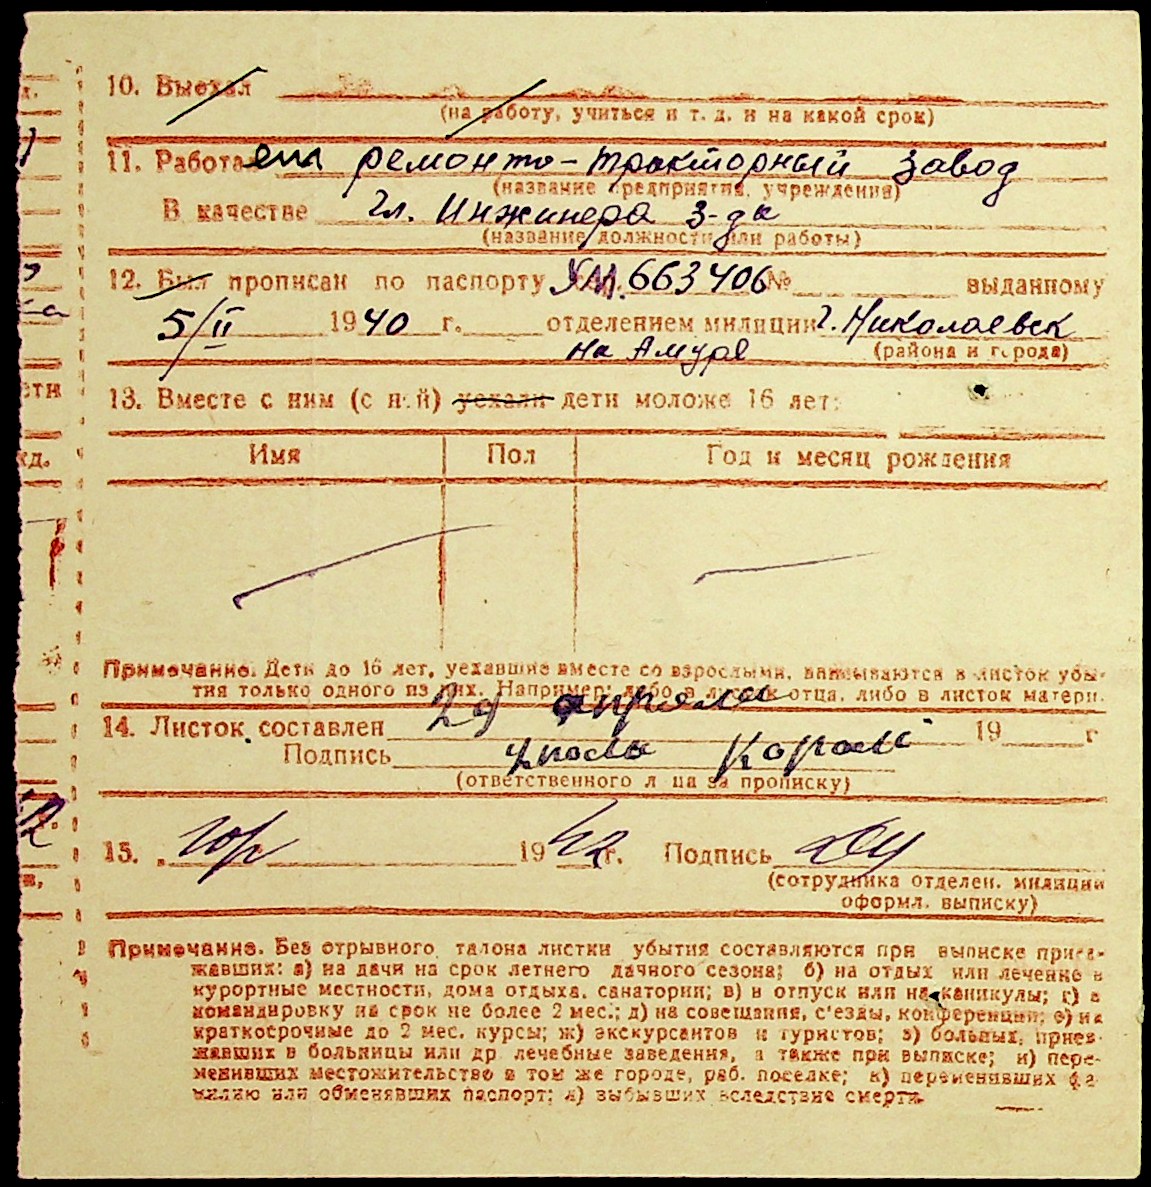 10. Выехал
(на работу, учиться и т. д. и на какой срок)
11. Работа ет ремонто-тракторный завод
(название предприятия, учреждения)
В качестве Гл. Инжинера з-да
(название должности или работы)
12. Был прописан по паспорту 663406 № выданному
5/II 1940 г. отделением милиции г. Николаевск
на Амуре (района и города)
13. Вместе с ним (с ней) уехали дети моложе 16 лет:
Имя Пол Год и месяц рождения
Примечание. Дети до 16 лет, уехавшие вместе со взрослыми, вписываются в листок убы-
тия только одного из них. Например: либо в листок отца, либо в листок матери.
14. Листок составлен 29 апреля 19 г
Подпись
(ответственного лица за прописку)
15. 1942 г. Подпись
(сотрудника отделен. милиции
оформл. выписку)
Примечание. Без отрывного талона листки убытия составляются при выписке приез-
жавших: а) на дачи на срок летнего дачного сезона; б) на отдых или лечение в
курортные местности, дома отдыха, санатории; в) в отпуск или на каникулы; г) в
командировку на срок не более 2 мес.; д) на совещания, с'езды, конференции; е) на
краткосрочные до 2 мес. курсы; ж) экскурсантов и туристов; з) больных, приез-
жавших в больницы или др лечебные заведения, а также при выписке; и) пере-
менивших местожительство в том же городе, раб. поселке; к) переменивших фа
милию или обменявших паспорт; л) выбывших вследствие смерти.